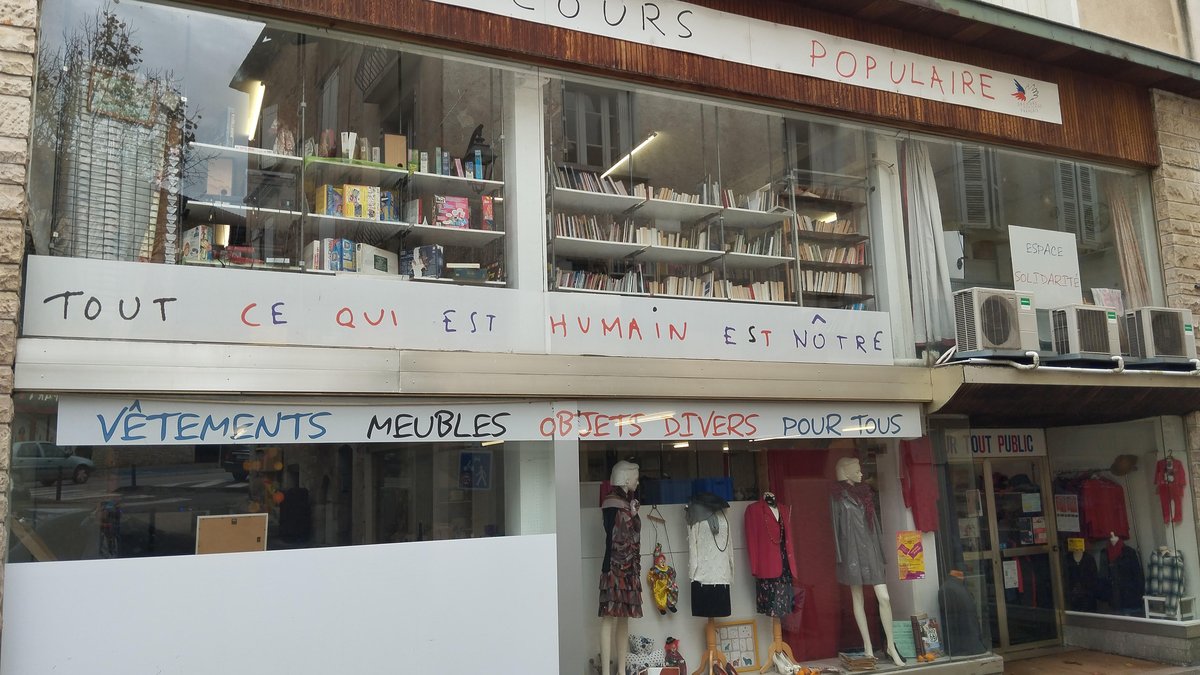 COURS POPULAIRE
ESPACE
SOLIDARITÉ
TOUT CE QUI EST HUMAIN EST NÔTRE
VÊTEMENTS MEUBLES OBJETS DIVERS POUR TOUS
R TOUT PUBLIC